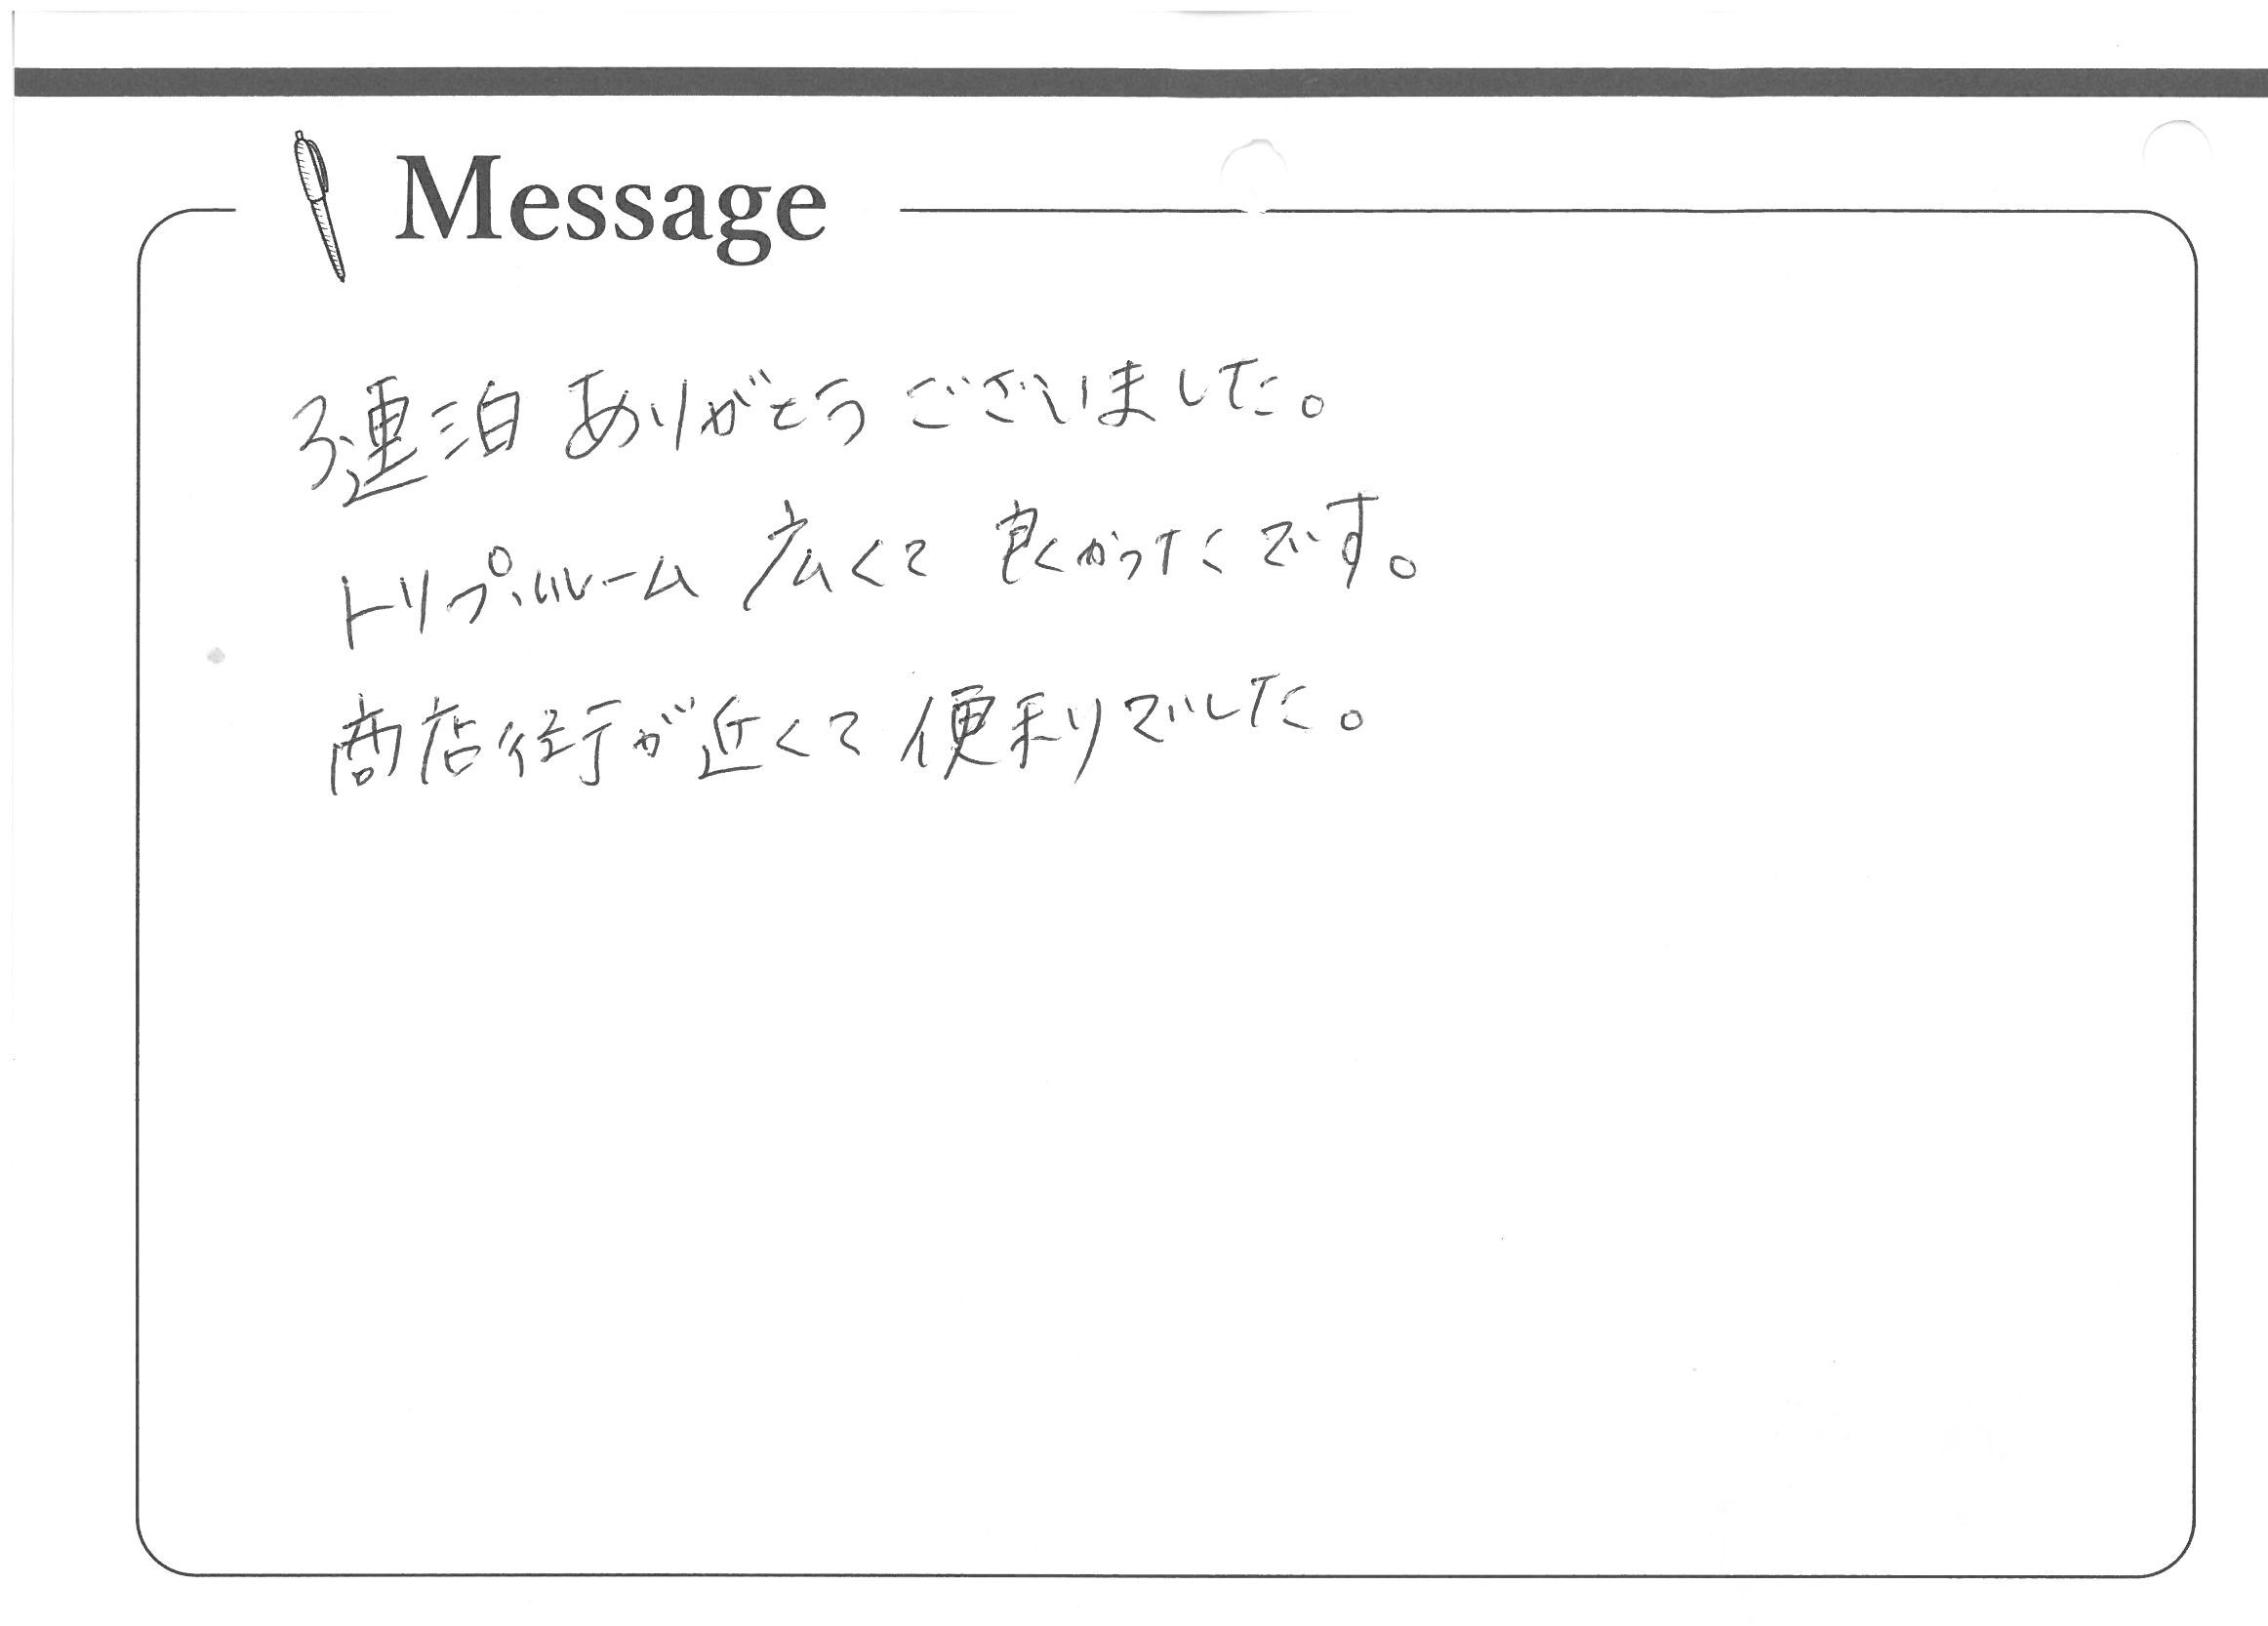 Message
3連泊 ありがとう ございました。
トリプルルーム 広くて 良かったです。
商店街が近くて 便利でした。